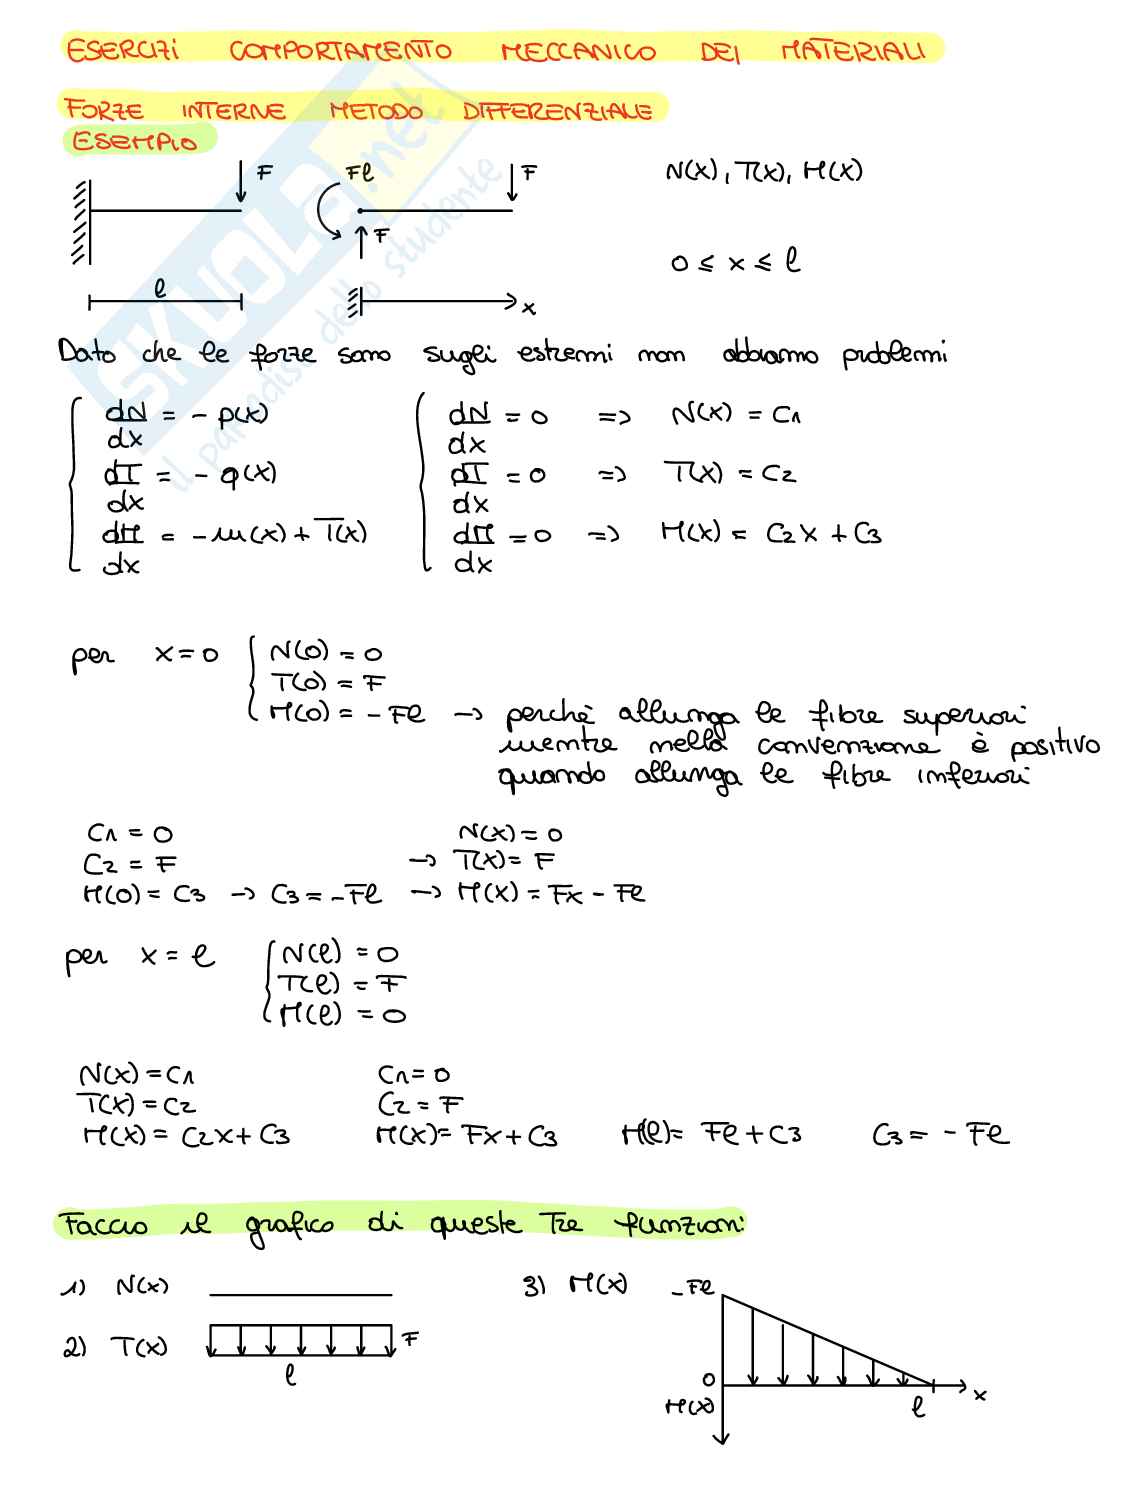 ESERCIZI COMPORTAMENTO MECCANICO DEI MATERIALI
FORZE INTERNE METODO DIFFERENZIALE
ESEMPIO
F Fl F N(x), T(x), M(x)
F
0 ≤ x ≤ l
l
x
Dato che le forze sono sugli estremi non abbiamo problemi
dN/dx = - p(x) dN/dx = 0 => N(x) = C1
dT/dx = - q(x) dT/dx = 0 => T(x) = C2
dM/dx = -m(x) + T(x) dM/dx = 0 => M(x) = C2x + C3
per x = 0 N(0) = 0
T(0) = F
M(0) = - Fl -> perchè allunga le fibre superiori
mentre nella convenzione è positivo
quando allunga le fibre inferiori
C1 = 0 N(x) = 0
C2 = F -> T(x) = F
M(0) = C3 -> C3 = -Fl -> M(x) = Fx - Fl
per x = l N(l) = 0
T(l) = F
M(l) = 0
N(x) = C1 C1 = 0
T(x) = C2 C2 = F
M(x) = C2x + C3 M(x) = Fx + C3 M(l) = Fl + C3 C3 = - Fl
Faccio il grafico di queste tre funzioni:
1) N(x) 3) M(x) -Fl
2) T(x) F
l
0
x
M(x) l
SKUOLA.net
il paradiso dello studente